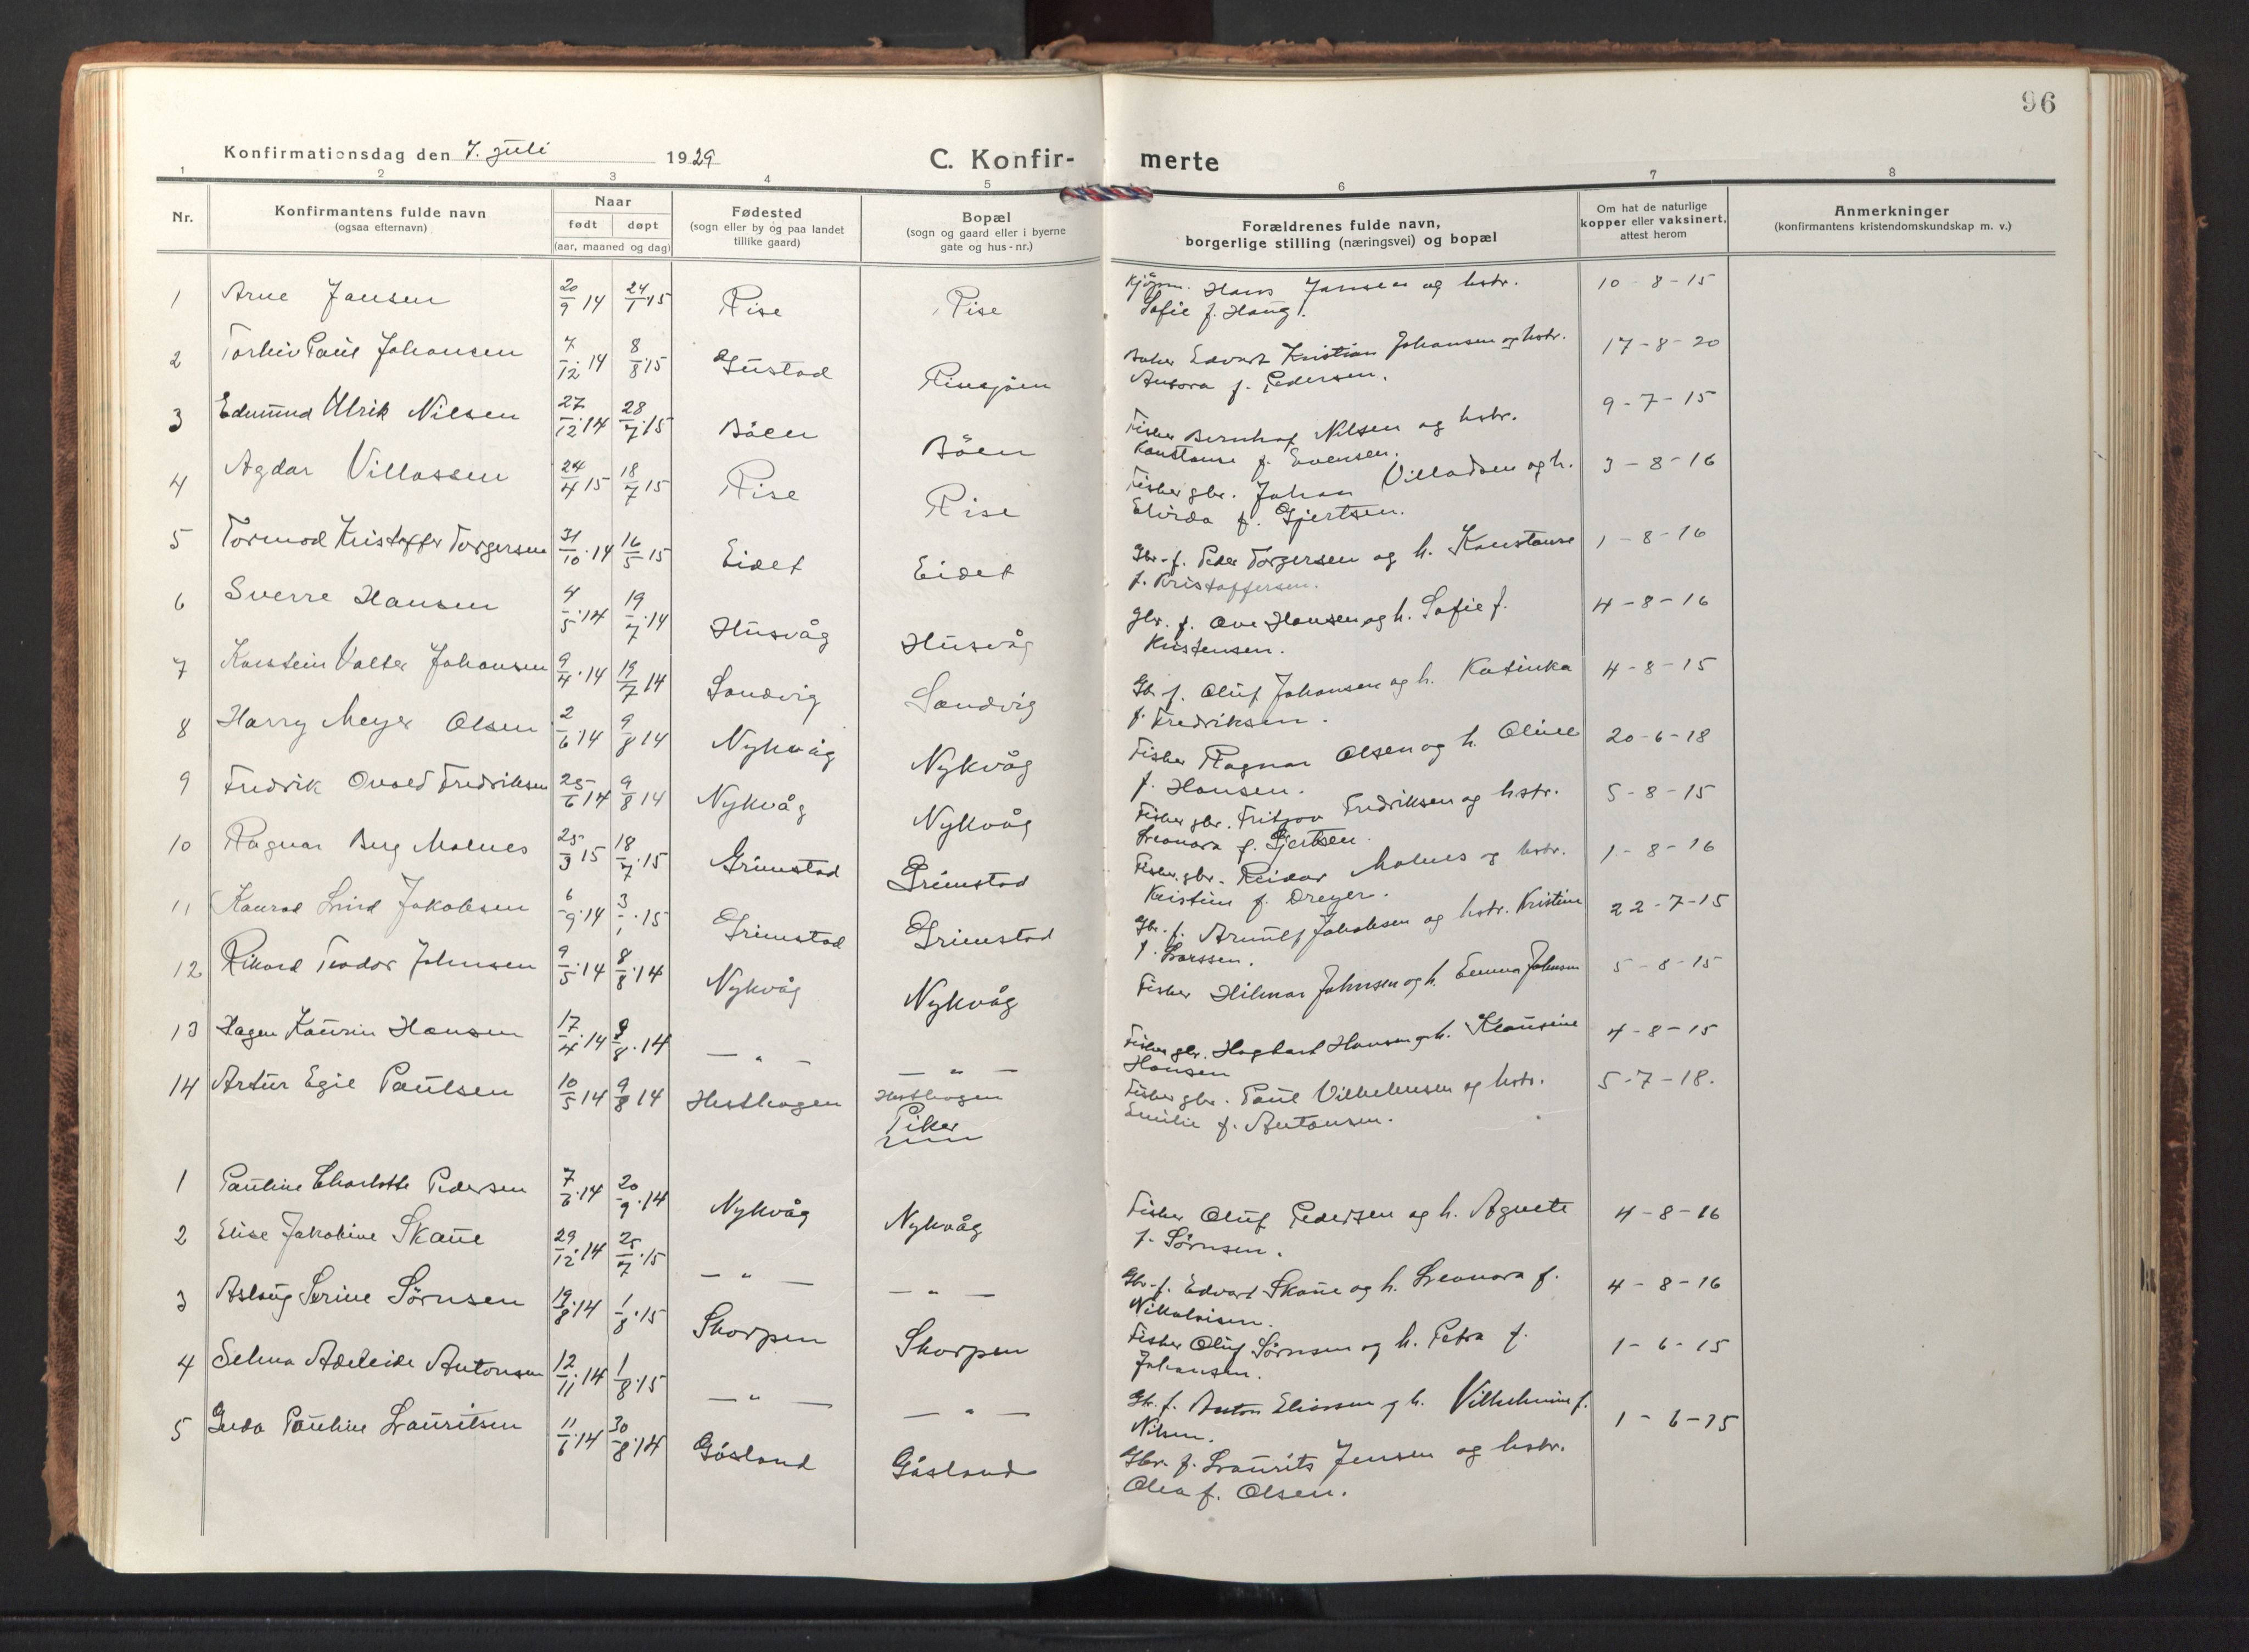 96
Konfirmationsdag den 7. juli 1929
C. Konfir- merte
1 2 3 4 5 6 7 8
Nr.
Konfirmantens fulde navn
(ogsaa efternavn)
Naar
født døpt
(aar, maaned og dag)
Fødested
(sogn eller by og paa landet
tillike gaard)
Bopæl
(sogn og gaard eller i byerne
gate og hus-nr.)
Forældrenes fulde navn,
borgerlige stilling (næringsvei) og bopæl
Om hat de naturlige
kopper eller vaksinert,
attest herom
Anmerkninger
(konfirmantens kristendomskundskap m. v.)
1 Arne Jansen 20/9 14 24/1 15 Rise Rise Kjøpm. Hans Jansen og hstr. 10-8-15
Sofie f. Haug.
2 Paul Johansen 7/12 14 8/8 15 Gustad Edvart Kristian Johansen og hstr. 17-8-20
Aurora f. Pedersen.
3 Edmund Ulrik Nilsen 27/12 14 28/7 15 Böen Böen Fisker Nilsen og hstr. 9-7-15
Konstanse f. Evensen.
4 Agdar Villassen 24/4 15 18/7 15 Rise Rise Fisker gbr. Johan Villadsen og h. 3-8-16
f. Gjertsen.
5 Tormod Kristoffer Torgersen 31/10 14 16/5 15 Eidet Eidet Gbr.-f. Peder Torgersen og h. Konstanse 1-8-16
f. Kristoffersen.
6 Sverre Hansen 4/5 14 19/7 14 Husvåg Husvåg Gbr. f. Ove Hansen og h. Sofie f. 4-8-16
Kristensen.
7 Karstein Valter Johansen 9/4 14 19/7 14 Sandvig Sandvig Gbr. f. Oluf Johansen og h. Katinka 4-8-15
f. Fredriksen.
8 Harry Meyer Olsen 2/6 14 9/8 14 Nykvåg Nykvåg Fisker Ragnar Olsen og h. 20-6-18
f. Hansen.
9 Fredrik Fredriksen 25/6 14 9/8 14 Nykvåg Nykvåg Fisker gbr. Fritjov Fredriksen og hstr. 5-8-15
Leonora f. Gjertsen.
10 Ragnar Berg Molnes 25/3 15 18/7 15 Grimstad Grimstad Fisker gbr. Reidar Molnes og hstr. 1-8-16
Kristine f. Dreyer.
11 Konrad Jakobsen 6/9 14 3/1 15 Grimstad Grimstad Gbr. f. Arnulf Jakobsen og hstr. Kristine 22-7-15
f. Larssen.
12 Rikard Teodor Johnsen 9/5 14 8/8 14 Nykvåg Nykvåg Fisker Hilmar Johnsen og h. Emma Johnsen 5-8-15
13 Hagen Kaurin Hansen 17/4 14 9/8 14 — " — — " — Fisker gbr. Hagbart Hansen og h. Klausine 4-8-15
Hansen
14 Artur Egil Paulsen 10/5 14 9/8 14 Hesthagen Hesthagen Fisker gbr. Paul Vilhelmsen og hstr. 5-7-18.
Emilie f. Antonsen.
Piker
1 Pauline Charlotte Pedersen 7/6 14 20/9 14 Nykvåg Nykvåg Fisker Oluf Pedersen og h. Agnete 4-8-16
f. Sørnsen.
2 Elise Jakobine Skaue 29/12 14 25/7 15 — " — — " — Gbr.-f. Edvart Skaue og h. Leonora f. 4-8-16
Nikolaisen.
3 Aslaug Serine Sørnsen 19/8 14 1/8 15 Skorpen Skorpen Fisker Oluf Sørnsen og h. Petra f. 1-6-15
Johansen.
4 Selma Adeleide Antonsen 12/11 14 1/8 15 — " — — " — Gbr. f. Anton Eliassen og h. Vilhelmine f. 1-6-15
Nilsen.
5 Pauline Lauritsen 11/6 14 30/8 14 Gåsland Gåsland Gbr. f. Laurits Jensen og hstr.
Olea f. Olsen.